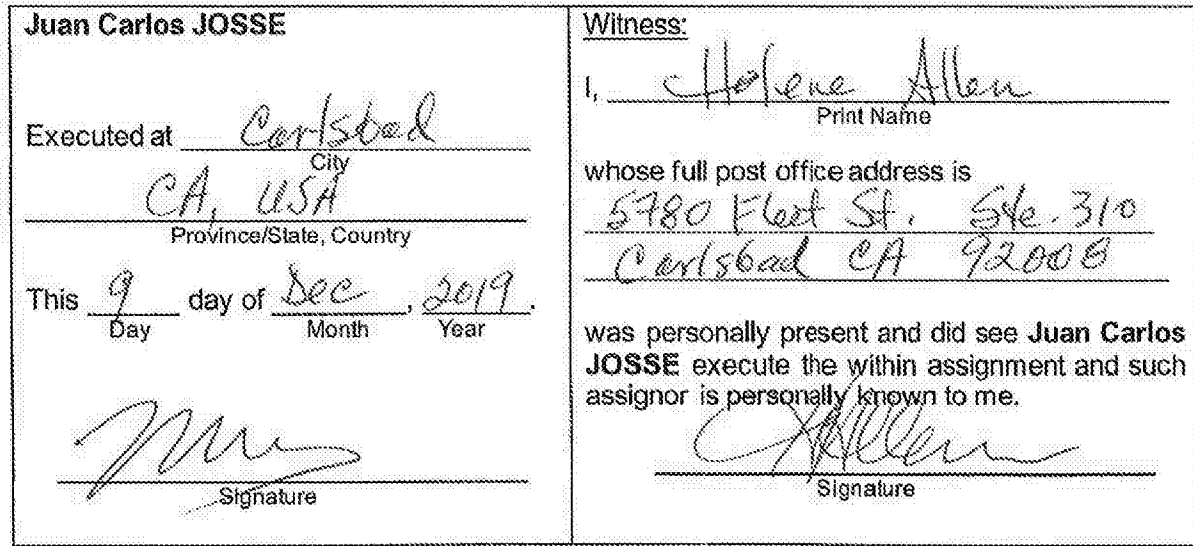 Juan Carlos JOSSE
Executed at Carlsbad
City
CA, USA
Province/State, Country
This 9 day of Dec, 2019.
Day Month Year
Signature
Witness:
I, Helene Allen
Print Name
whose full post office address is
5780 Fleet St. Ste. 310
Carlsbad CA 92008
was personally present and did see Juan Carlos
JOSSE execute the within assignment and such
assignor is personally known to me.
Signature